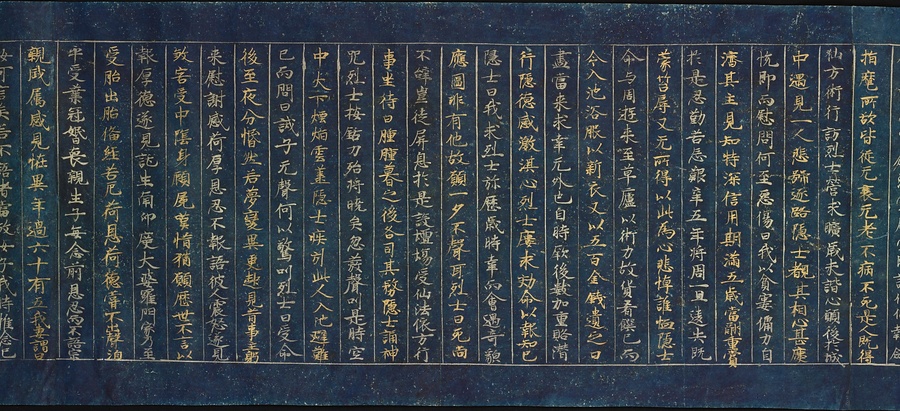 指麾所欲皆從无衰无老不病不死是人既得
仙方術行訪烈士營求曠歲未諧心願後於城
中遇見一人悲號逐路隱士覩其相心甚慶
悅即而慰問何至怨傷曰我以貧窶傭力自
濟其主見知特深信用期滿五歲當酬重賞
於是忍勤苦忘艱辛五年將周一旦違失既
蒙笞辱又无所得以此為心悲悼誰恤隱士
命与同遊來至草廬以術力故化具肴饌已而
令入池浴服以新衣又以五百金錢遺之曰
盡當來求幸无外也自時厥後數加重賂潛
行隱德感激其心烈士屢求効命以報知己
隱士曰我求烈士弥歷歲時幸而會遇奇貌
應圖非有他故願一夕不聲耳烈士曰死尚
不辭豈徒屏息於是設壇場受仙法依方行
事坐待日曛曛暮之後各司其務隱士誦神
呪烈士按銛刀殆將曉矣忽發聲叫是時空
中火下煙焰雲蒸隱士疾引此人入池避難
已而問曰誡子无聲何以驚叫烈士曰受命
後至夜分惛然若夢變異更起見昔事主躬
來慰謝感荷厚恩忍不報語彼震怒遂見
煞害受中陰身顧屍歎惜猶願歷世不言以
報厚德遂見託生南印度大婆羅門家乃至
受胎出胎俻經苦厄荷恩荷德嘗不出聲洎
乎受業冠婚喪親生子每念前恩忍而不語宗
親戚屬咸見恠異年過六十有五我妻謂曰
汝可言矣若不語者當煞汝子我時惟念已